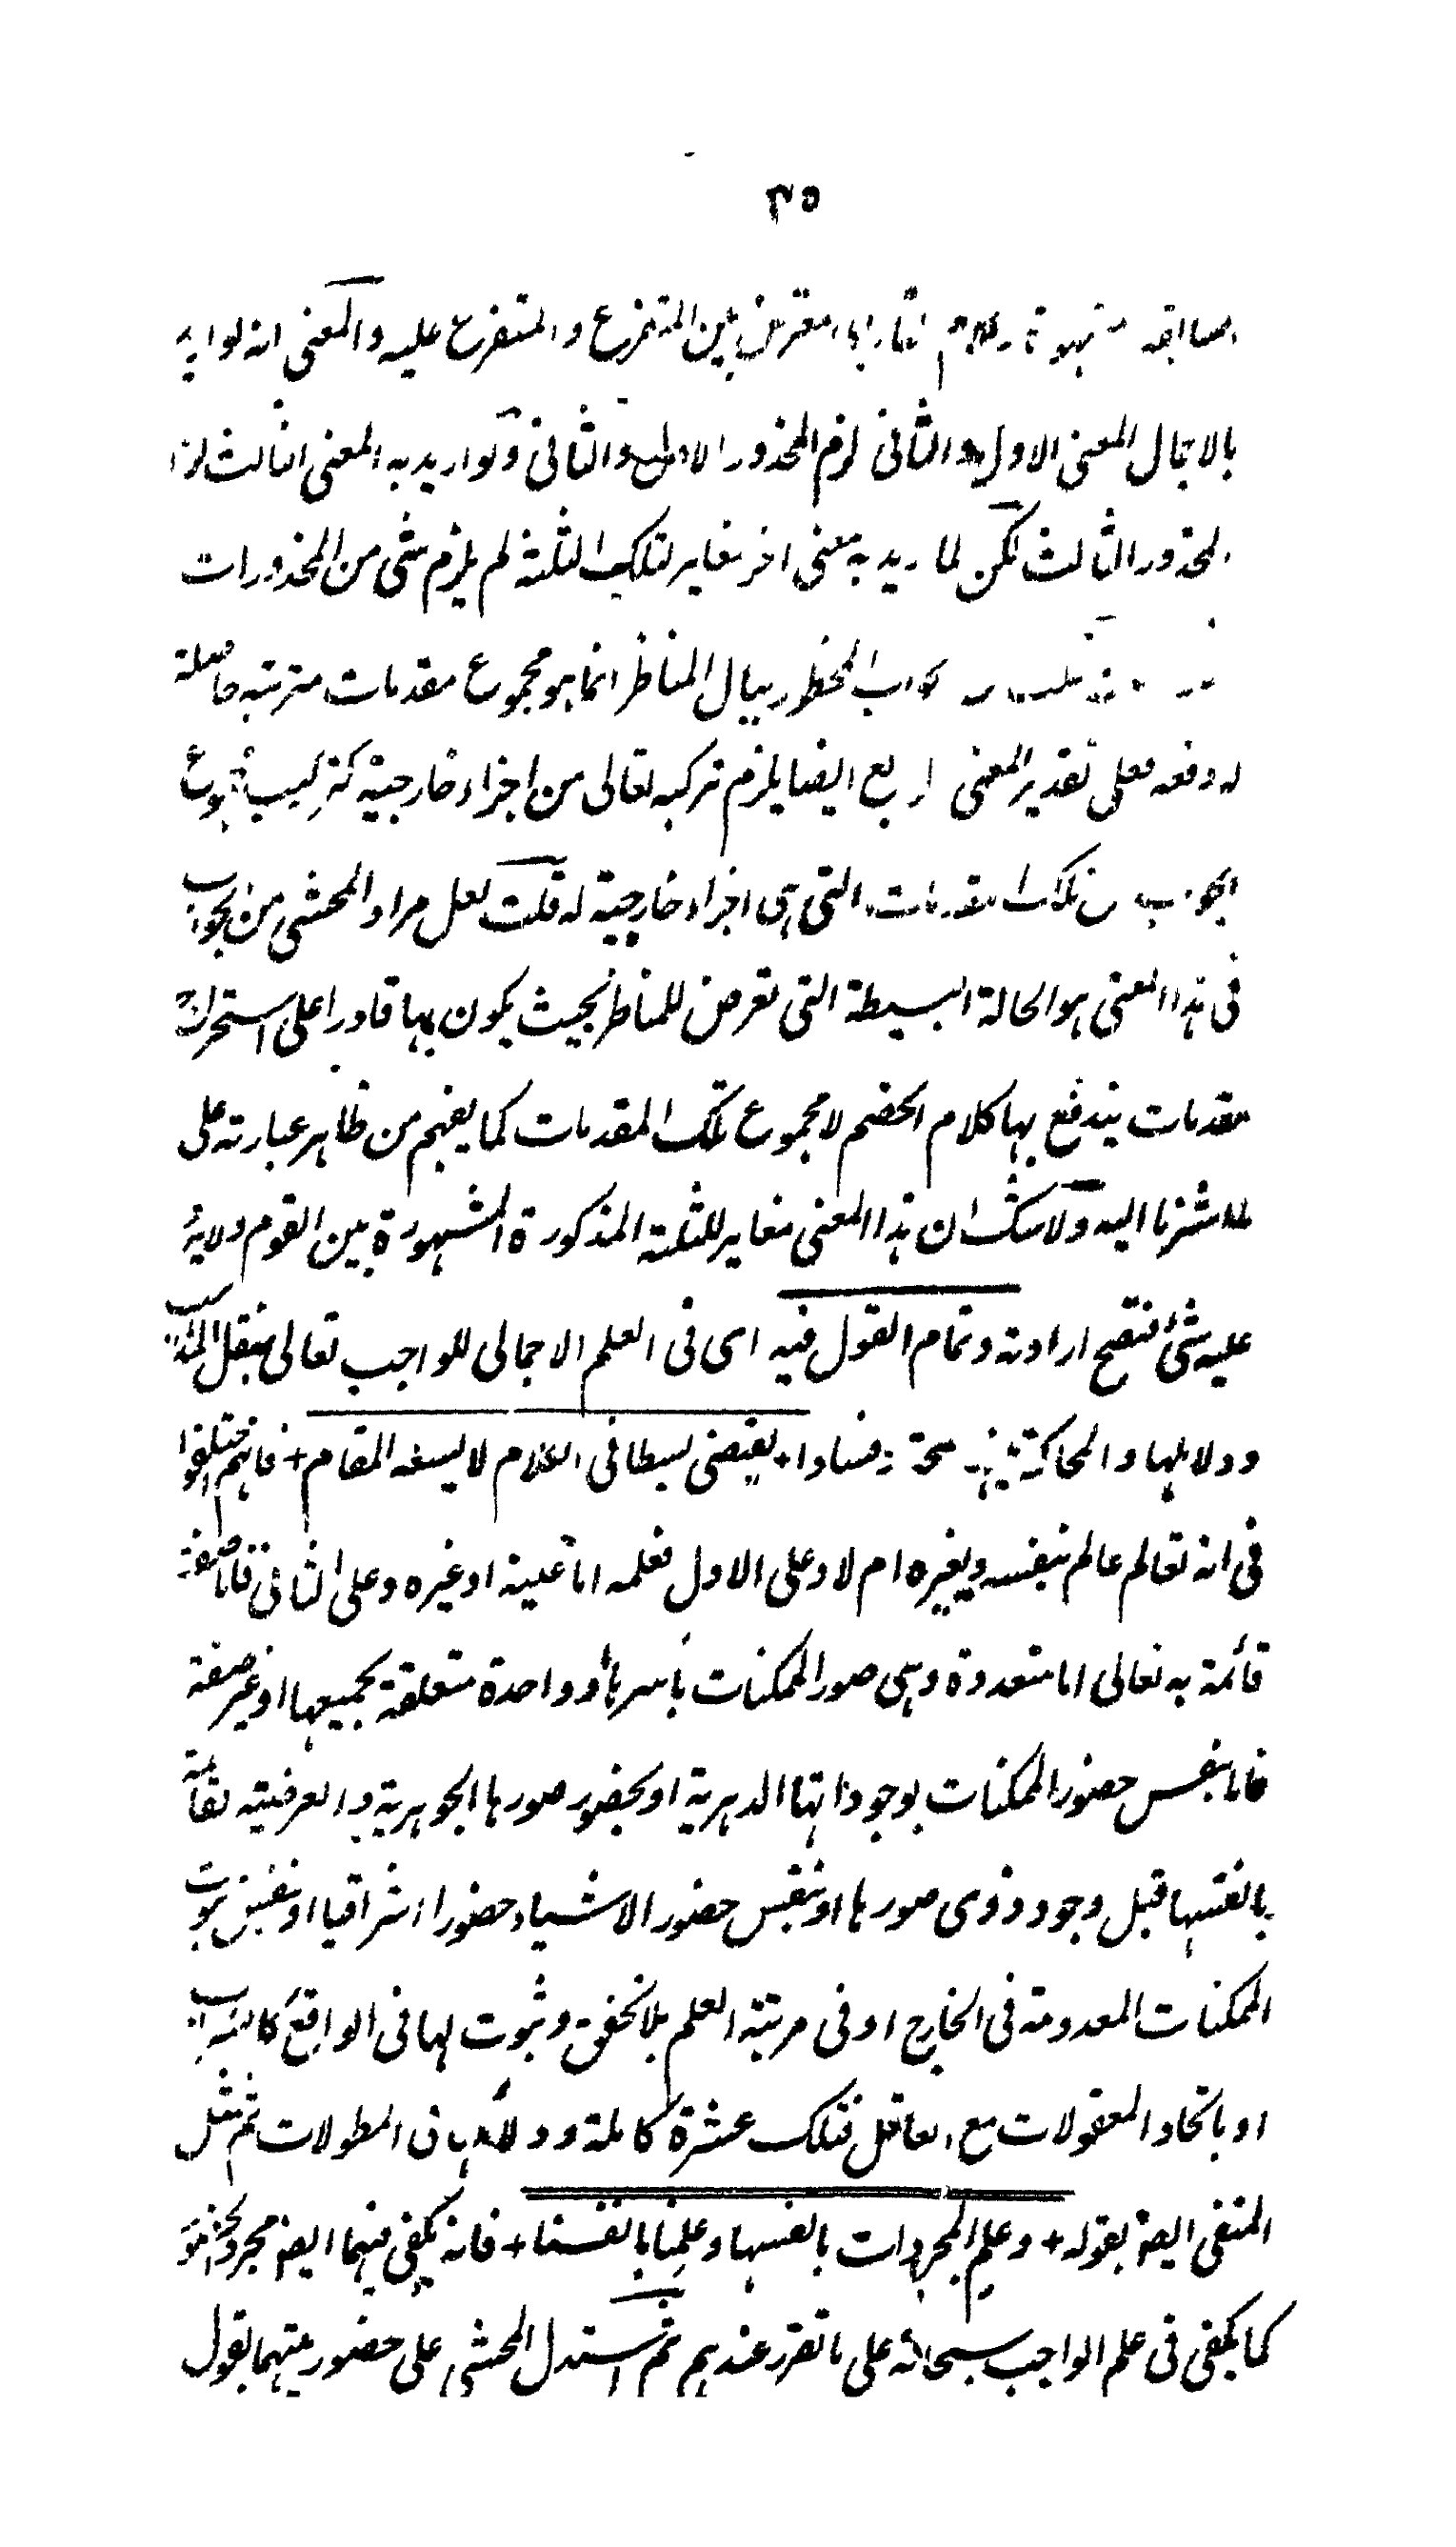 ٣٥
معترض بين المتفرع والمتفرع عليه والمعنى انه لو اريد
بالاجمال المعنى الاول والثانى لزم المحذور الاول والثانى ولو اريد به المعنى الثالث لزم
المحذور الثالث لكن لما اريد به معنى اخر مغاير لتلك الثلثة لم يلزم شى من المحذورات
الجواب المخطور ببال المناظر انما هو مجموع مقدمات مترتبه حاصلة
له دفعه فعلى تقدير المعنى الرابع ايضا يلزم تركبه تعالى من اجزاء خارجية كتركيب مجموع
الجواب من تلك المقدمات التى هى اجزاء خارجية له قلت لعل مراد المحشى من الجواب
فى هذا المعنى هو الحالة البسيطة التى تعرض للمناظر بحيث يكون بها قادرا على استحراك
مقدمات يندفع بها كلام الخصم لا مجموع تلك المقدمات كما يفهم من ظاهر عبارته على
ما اشرنا اليه ولا شك ان هذا المعنى مغاير للثلثة المذكورة المشهورة بين القوم ولا يرد
عليه شئ فتصح ارادته وتمام القول فيه اى فى العلم الاجمالى للواجب تعالى بنقل المذاهب
ودلايلها والمحاكمة بينهم صحة وفسادا + يقتضى بسطا فى الكلام لا يسعه المقام + فانهم اختلفوا
فى انه تعالم عالم بنفسه وبغيره ام لا وعلى الاول فعلمه اما عينه او غيره وعلى الثانى فاما صفة
قائمة به تعالى اما متعددة وهى صور الممكنات بأسرها او واحدة متعلقة بجميعها او غير صفة
فاما بنفس حضور الممكنات بوجوداتها الدهرية او بحضور صورها الجوهرية والعرضيته القائمة
بانفسها قبل وجود ذوى صورها او بنفس حضور الاشياء حضورا اشراقيا او بنفس ثبوت
الممكنات المعدومة فى الخارج او فى مرتبة العلم بلا تحقق وثبوت لها فى الواقع كالسراب
او باتحاد المعقولات مع العاقل فتلك عشرة كاملة ودلائلها فى المطولات ثم مثل
المنفى ايضا بقوله + وعلم المجردات بانفسها وعلمنا بانفسنا + فانه يكفى فيهما ايضا مجرد الحضور
كما يكفى فى علم الواجب سبحانه على ما تقرر عندهم ثم استدل المحشى على حضور يتهما بقول